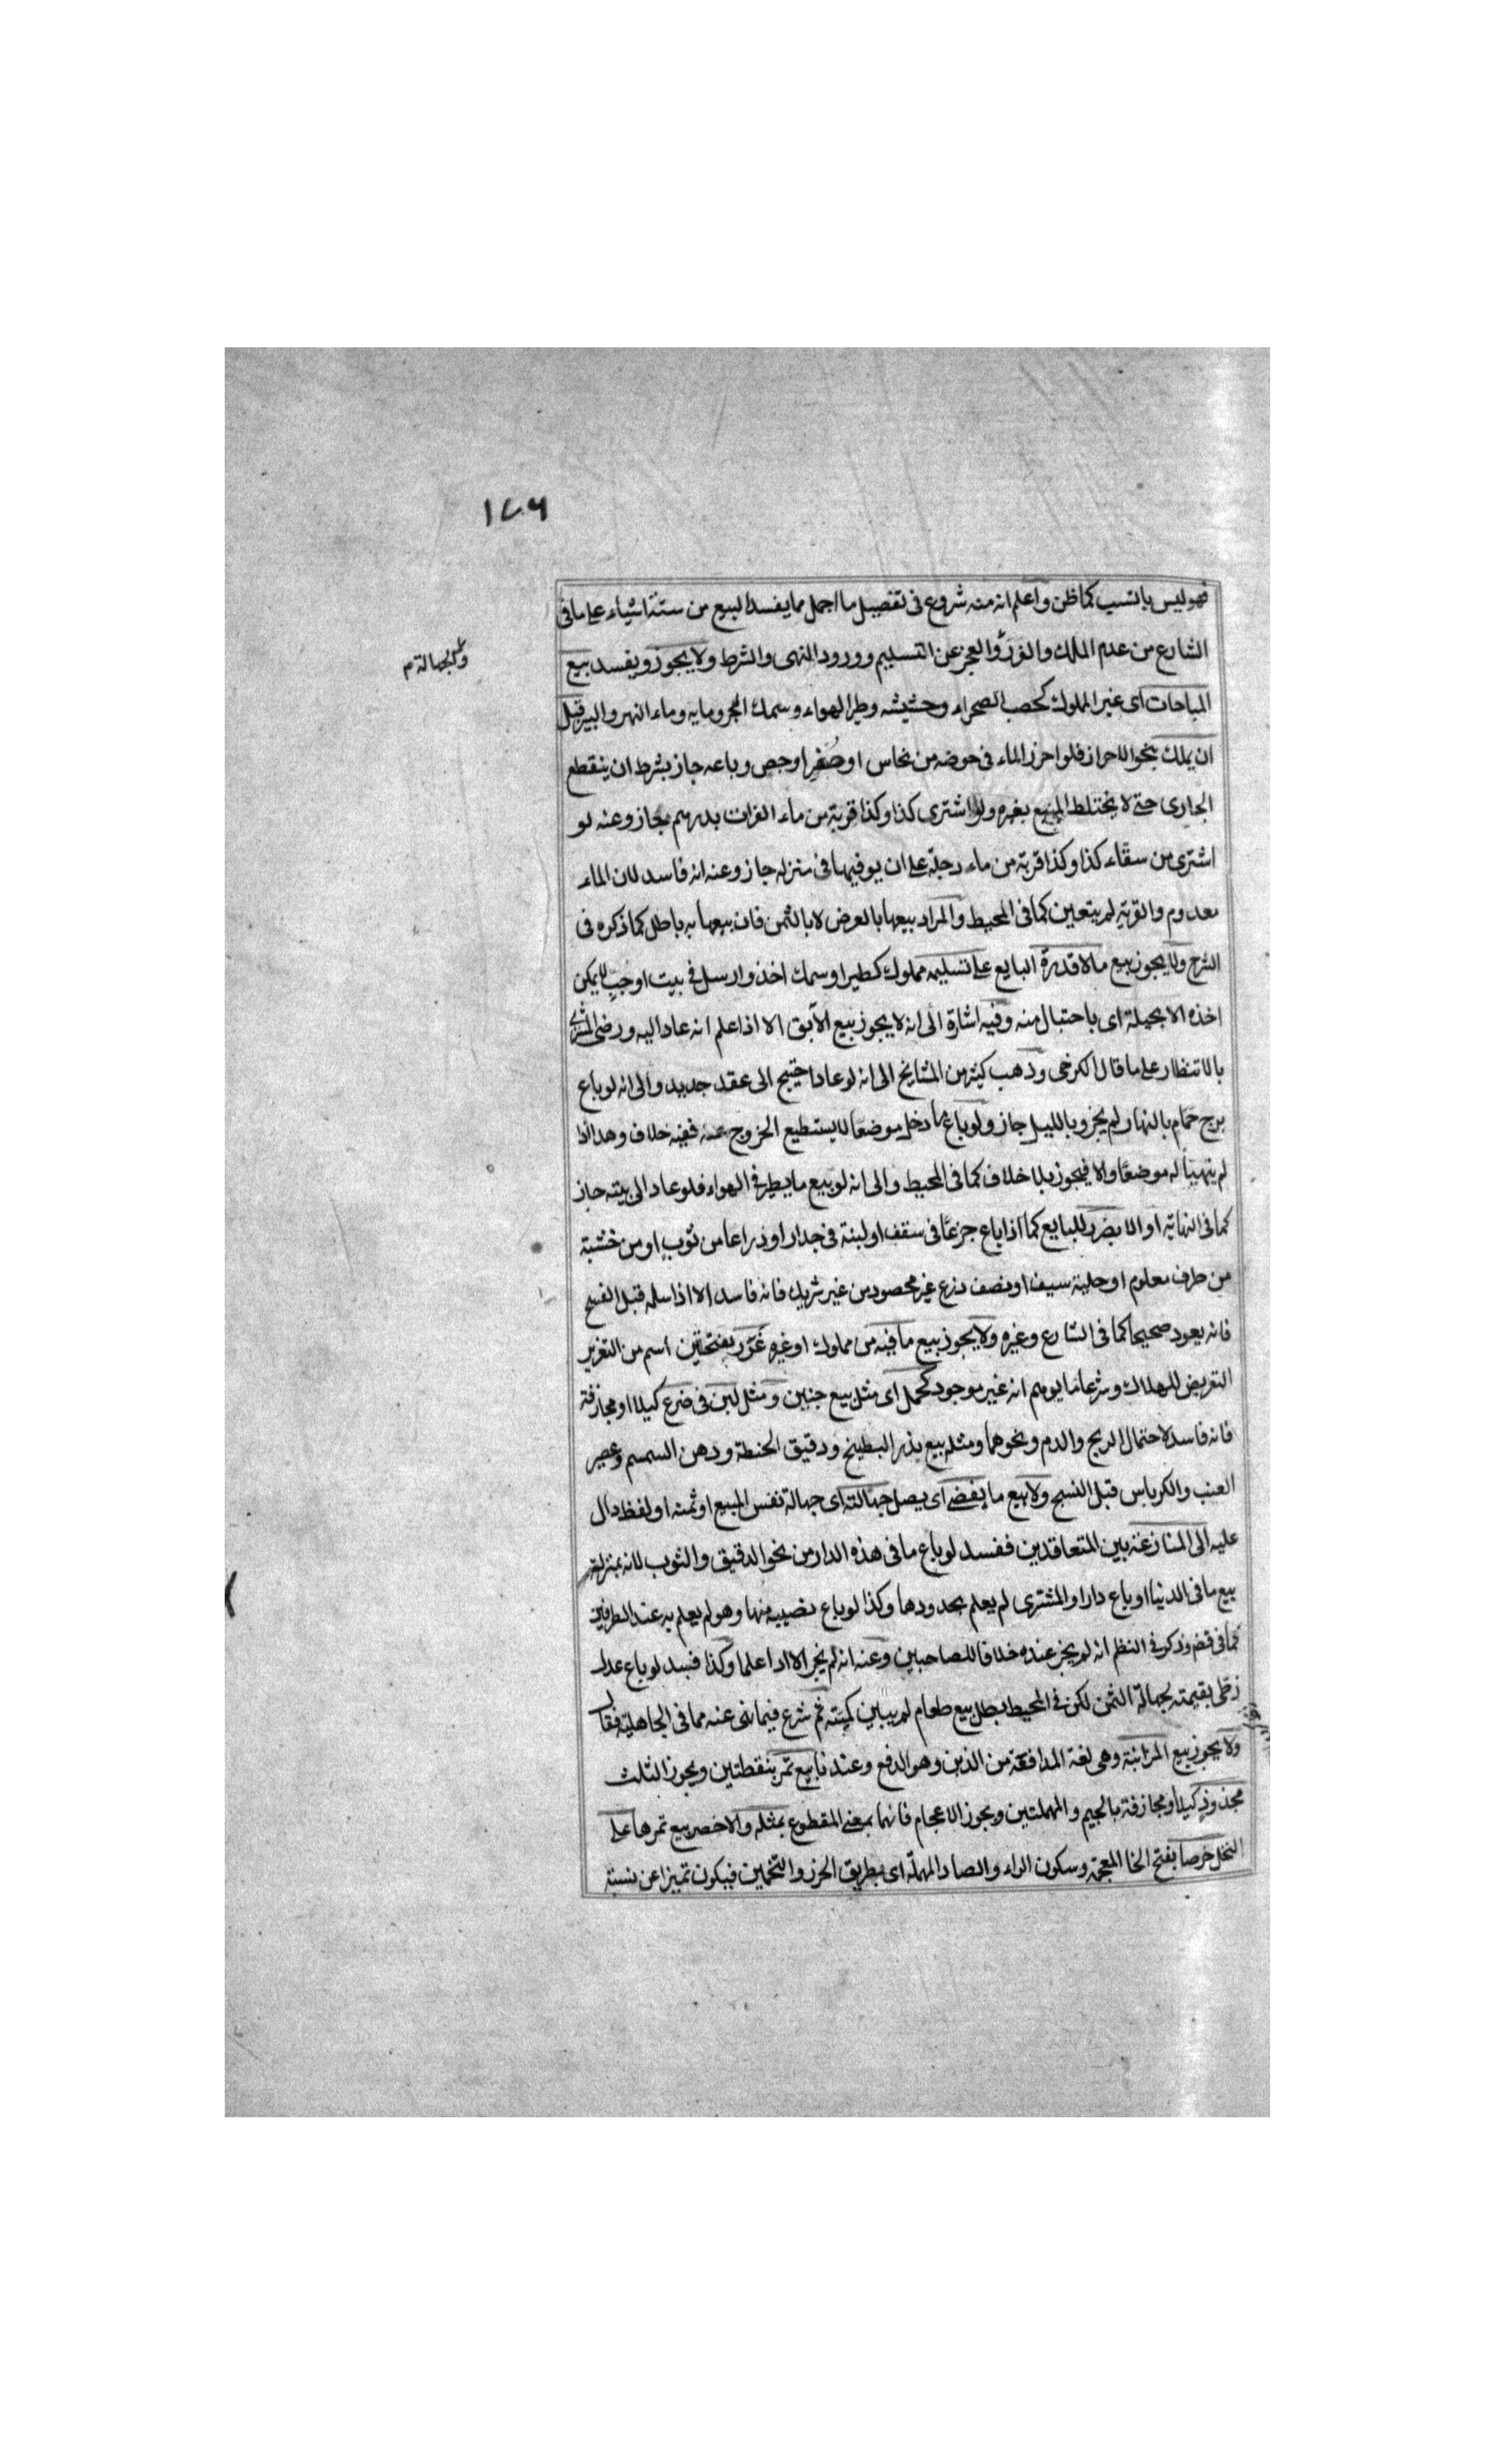 ١٧٦
فهو ليس بانسب كما ظن واعلم انه منه شروع في تفصيل ما اجمل مما يفسد البيع من ستة اشياء على ما في
الشارع من عدم الملك والغرر والعجز عن التسليم وورود النهى والشرط ولا يجوز ويفسد بيع
والجهالة م
المباحات اى غير المملوك كحصب الصحراء وحشيشه وطير الهواء وسمك البحر ومايه وماء النهر والبير قبل
ان يملك بنحو الاحراز فلو احرز الماء في حوضه من نحاس او صُفرٍ او جص وباعه جاز بشرط ان ينقطع
الجارى حتى لا يختلط المبيع بغيره ولو اشترى كذا وكذا قربة من ماء الفرات بدرهم مجاز وعنه لو
اشترى من سقّاء كذا وكذا قربة من ماء دجلة على ان يوفيها في منزله جاز وعنه انه فاسد لان الماء
معدوم والقربة لم يتعين كما في المحيط والمراد بيعها بالعرض لا بالثمن فان بيعها به باطل كما ذكره في
الشرح ولا يجوز بيع ما لا قدرة البايع على تسليمه مملوك كطير او سمك اخذ وارسل في بيت او جبٍ لا يمكن
اخذه الا بحيلة اى باحتبال منه وفيه اشارة الى انه لا يجوز بيع الآبق الا اذا علم انه عاد اليه ورضى المشترى
بالانتظار على ما قال الكرخى وذهب كثير من المشايخ الى انه لو عاد احتيج الى عقد جديد والى انه لو باع
برج حمّام بالنهار لم يجز وبالليل جاز ولو باع ما دخل موضعًا لا يستطيع الخروج عنه ففيه خلاف وهذا اذا
لم يتهيأ له موضعًا والا فيجوز بلا خلاف كما في المحيط والى انه لو بيع ما يطير في الهواء فلو عاد الى بيته جاز
كما في النهاية او الا بضرر للبايع كما اذا باع جزعًا في سقف او لبنة في جدار او ذراعا من ثوبٍ او من خشبة
من طرف معلوم او حلية سيف او نصف زرع غير محصود من غير شريك فانه فاسد الا اذا سلمه قبل الفسخ
فانه يعود صحيحا كما في الشارع وغيره ولا يجوز بيع ما فيه من مملوك او غيره غَرَر بفتحتين اسم من التغرير
التعريض للهلاك وشرعا ما يوهم انه غير موجود كحمل اى مثل بيع جنين ومثل لبن في ضرع كيلا او مجازفة
فانه فاسد لاحتمال الريح والدم ونحوهما ومثله بيع بذر البطيخ ودقيق الحنطة ودهن السمسم وعصير
العنب والكرباس قبل النسج ولا بيع ما يفضى اى يصل جهالته اى جهالة نفس المبيع او ثمنه او لفظ دال
عليه الى المنازعة بين المتعاقدين ففسد لو باع ما في هذه الدار من نحو الدقيق والثوب لانه بمنزلة
بيع ما في الدنيا او باع دارا والمشترى لم يعلم بحدودها وكذا لو باع نصيبه منها وهو لم يعلم به عند الطرفين
كما في قض وذكر في النظم انه لم يجز عنده خلافا للصاحبين وعنه انه لم يجز الا اذا علما وكذا فسد لو باع عدل
زطى بقيمته لجهالة الثمن لكن في المحيط بطل بيع طعام لم يبين كميته ثم شرع فيما نهى عنه مما في الجاهلية فقال
ولا يجوز بيع المزابنة وهى لغة المدافعة من الذبن وهو الدفع وعندنا بيع تمر بنقطتين ويجوز الثلث
مجذوذٍ كيلا او مجازفة بالجيم والمهملتين ويجوز الاعجام فانها بمعنى المقطوع بمثله والاخصر بيع تمرها على
النخل خرصا بفتح الخا المعجمة وسكون الراء والصاد المهملة اى بطريق الحزر والتخمين فيكون تميزا عن نسبة